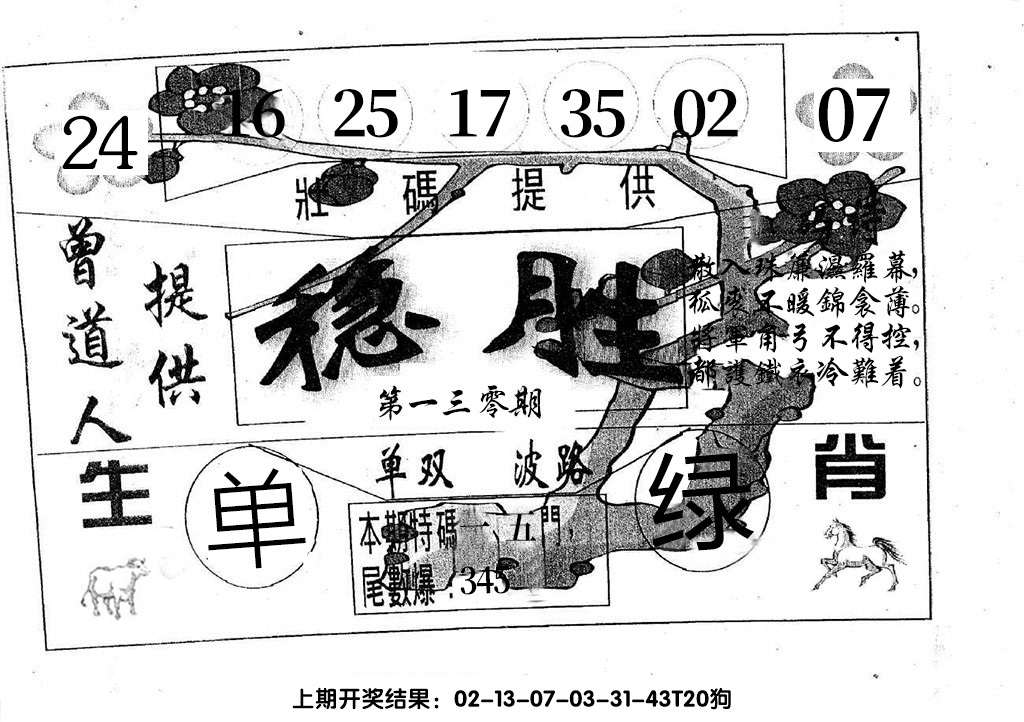 24 16 25 17 35 02 07
壯碼提供
曾道人
提供
稳胜
第一三零期
散入珠簾濕羅幕，
狐裘不暖錦衾薄。
將軍角弓不得控，
都護鐵衣冷難着。
单双 波路
生肖
单
绿
本期特碼一、五門，
尾數爆：345
上期开奖结果：02-13-07-03-31-43T20狗